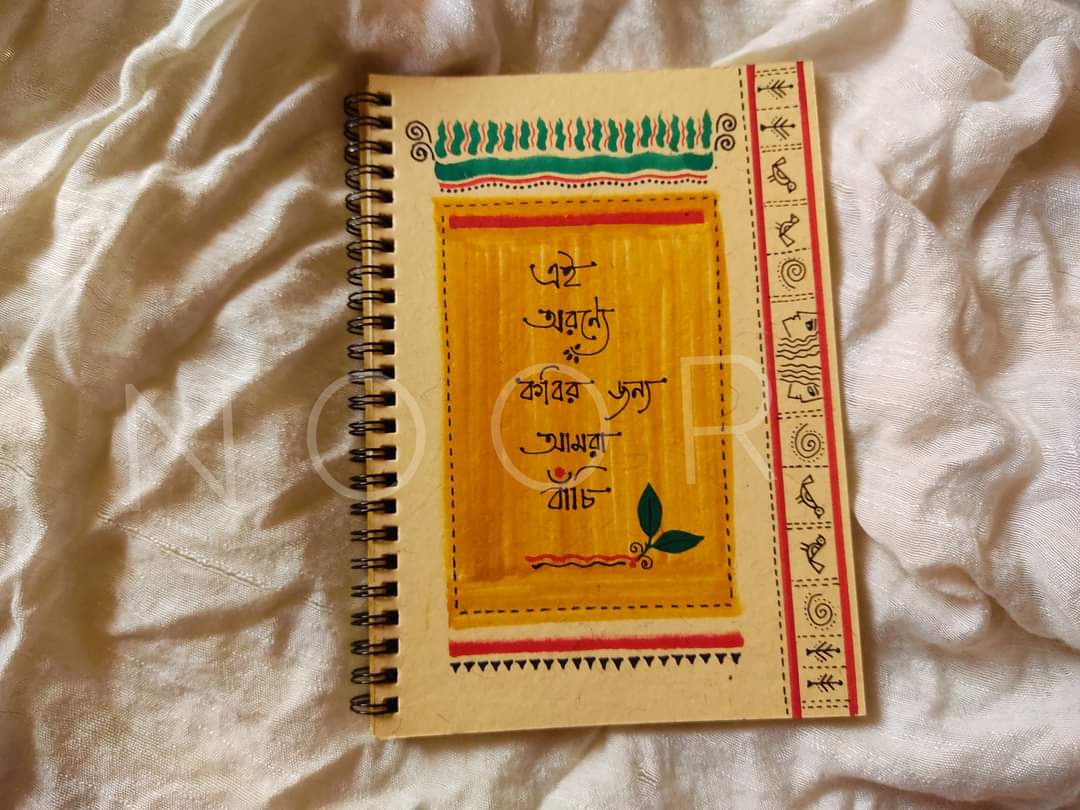 এই
অরণ্যে
কবির জন্য
আমরা
বাঁচি
NOOR